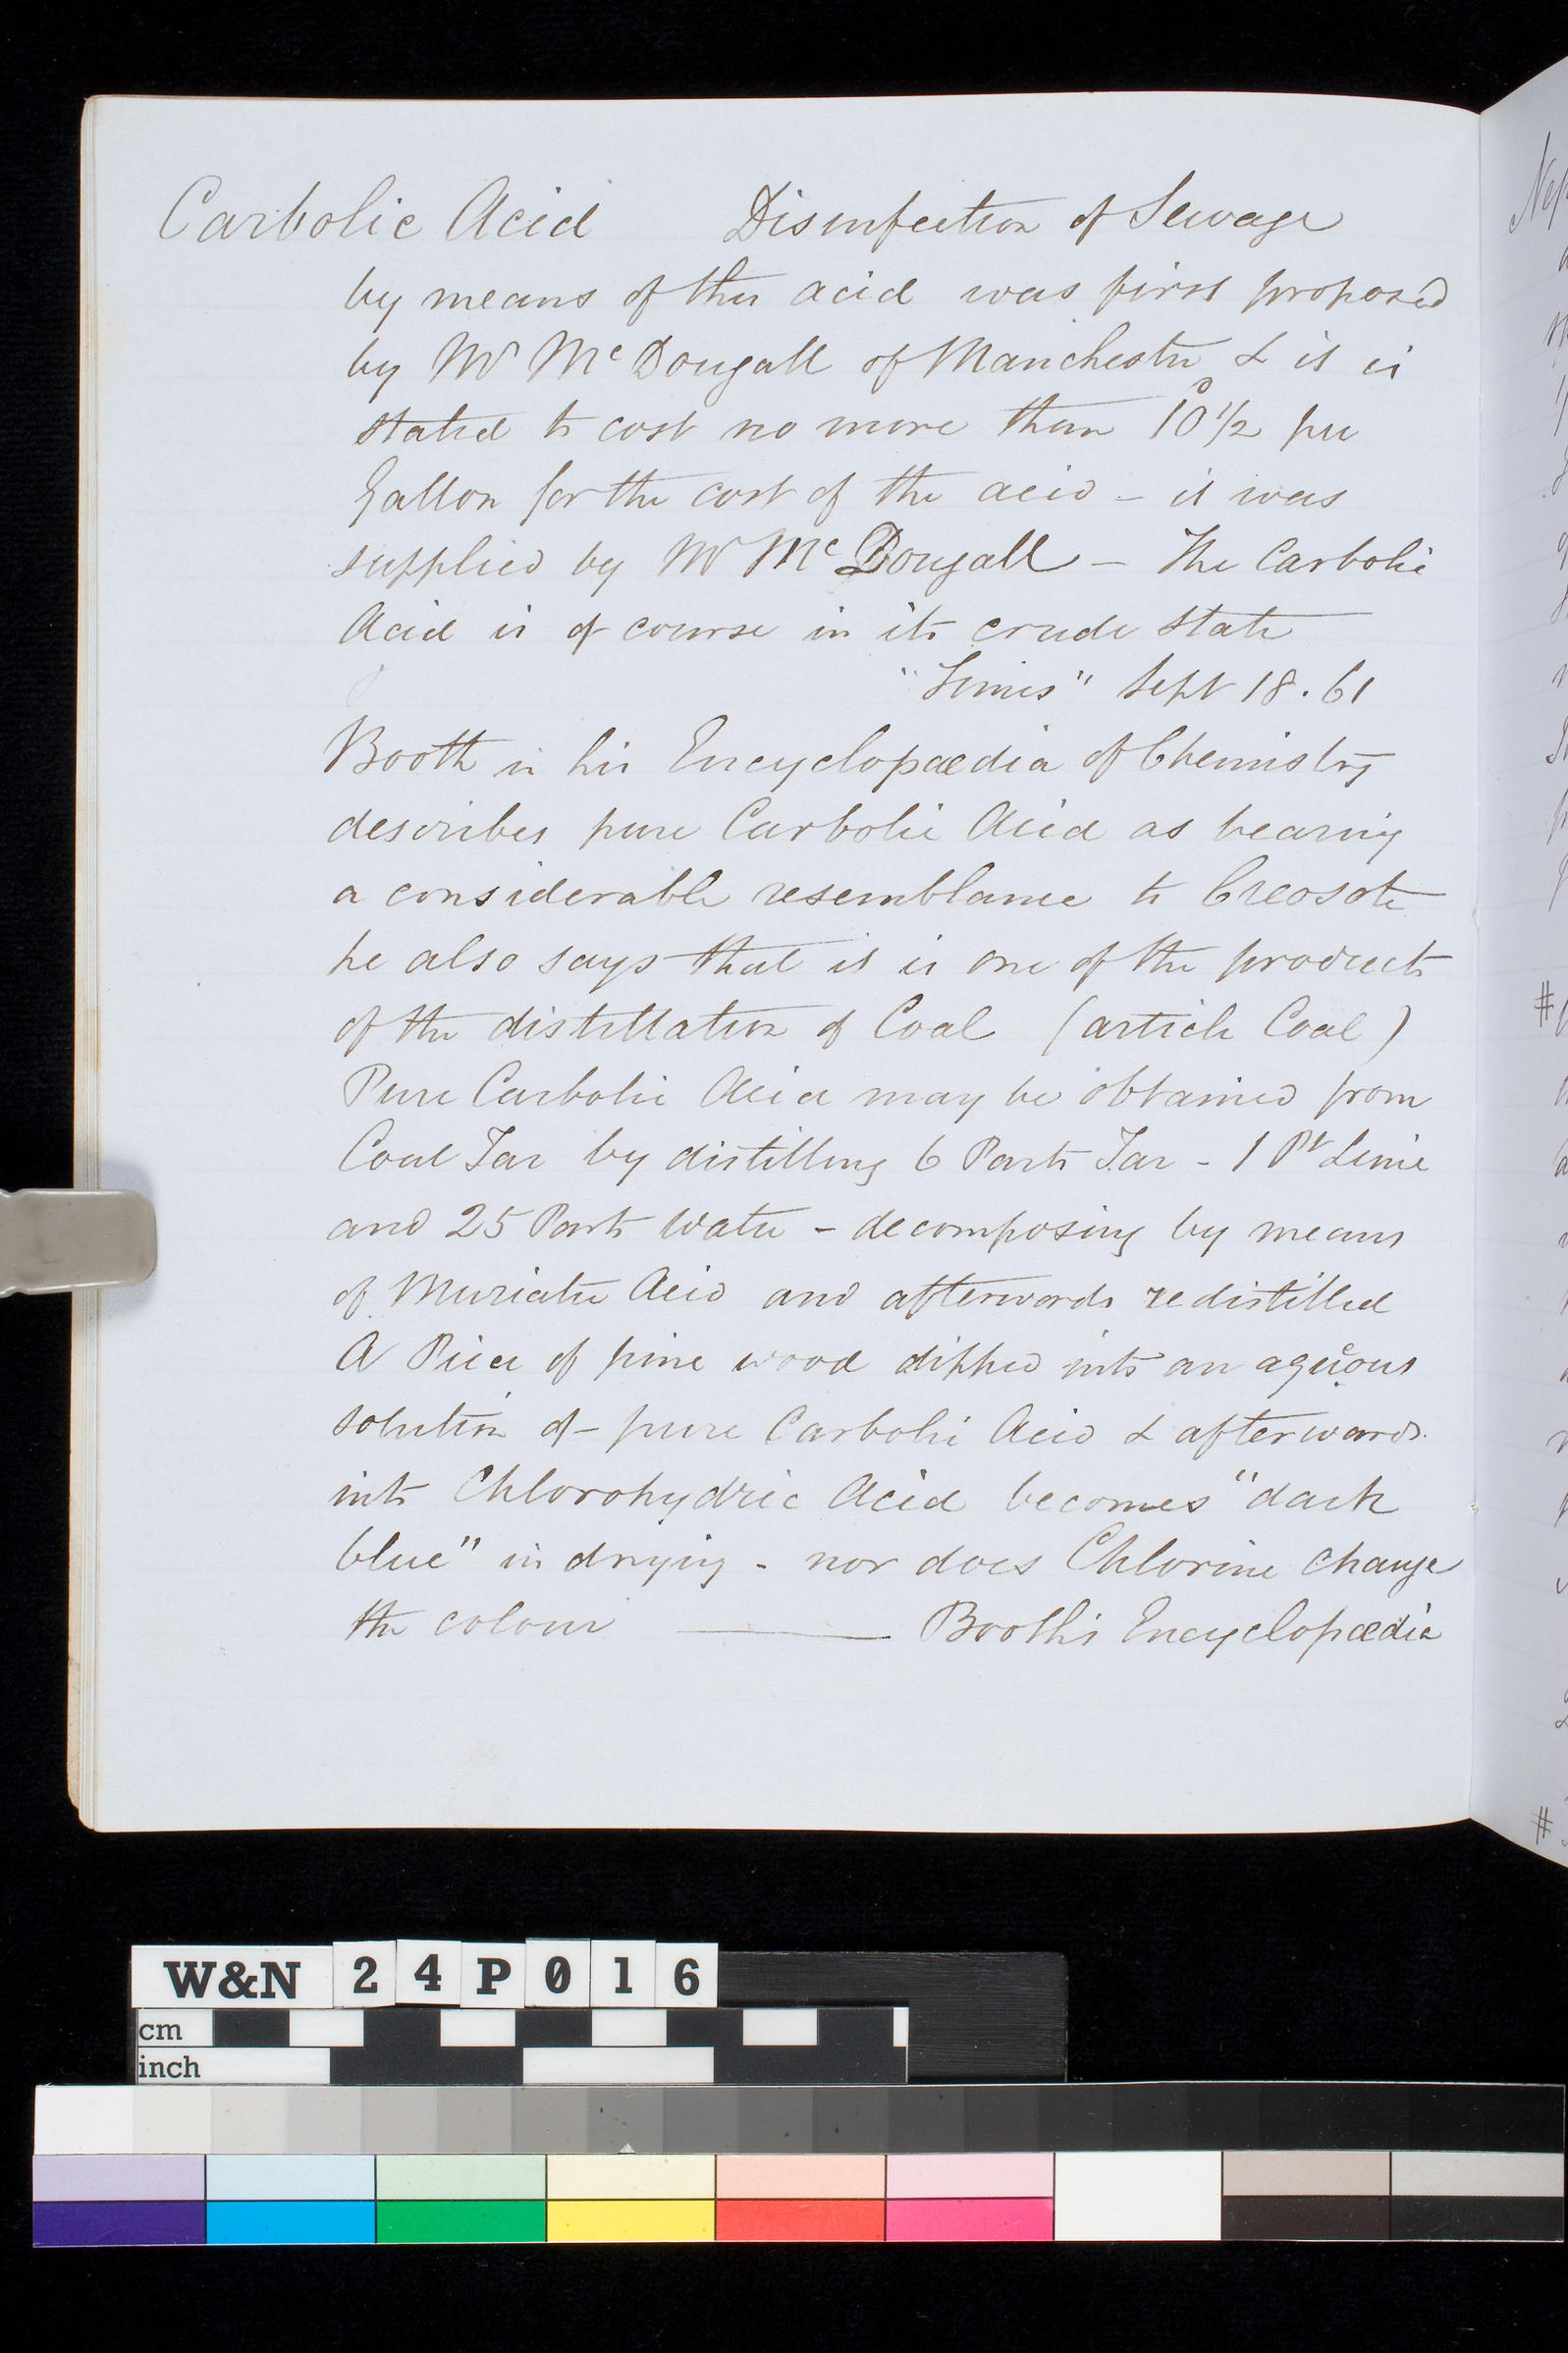 Carbolic Acid Disinfection of Sewage
by means of this acid was first proposed
by Mr McDougall of Manchester & it is
stated to cost no more than 10d 1/2 per
Gallon for the cost of the acid - it was
supplied by Mr McDougall - The Carbolic
Acid is of course in its crude state
"Times" Sept 18.61
Booth in his Encyclopædia of Chemistry
describes pure Carbolic Acid as bearing
a considerable resemblance to Creosote
he also says that it is one of the products
of the distillation of Coal (article Coal)
Pure Carbolic Acid may be obtained from
Coal Tar by distilling 6 Parts Tar - 1 Pt Lime
and 25 Parts Water - decomposing by means
of Muriatic Acid and afterwards redistilled
A Piece of pine wood dipped into an aqueous
solution of pure Carbolic Acid & afterwards
into Chlorohydric Acid becomes "dark
blue" in drying - nor does Chlorine change
the colour ——— Booth's Encyclopædia
W&N 24P016
cm
inch